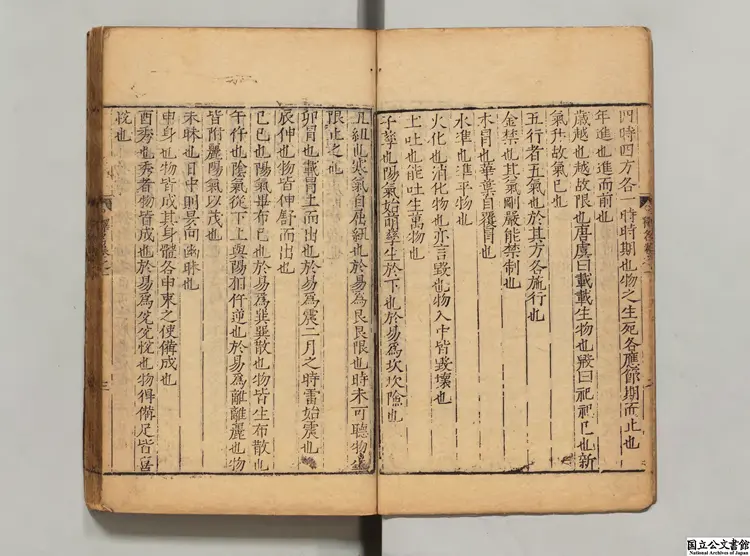 四時四方各一時時期也物之生死各應節期而止也
年進也進而前也
歲越也越故限也唐虞曰載載生物也殷曰祀祀巳也新
氣升故氣巳也
五行者五氣也於其方各施行也
金禁也其氣剛嚴能禁制也
木冒也華葉自覆冒也
水準也準平物也
火化也消化物也亦言毀也物入中皆毀壞也
土吐也能吐生萬物也
子孳也陽氣始萌孳生於下也於易爲坎坎險也
丑紐也寒氣自屈紐也於易爲艮艮限也時未可聽物生
限止之也
卯冒也載冒土而出也於易爲震二月之時雷始震也
辰伸也物皆伸舒而出也
巳巳也陽氣畢布巳也於易爲巽巽散也物皆生布散也
午仵也陰氣從下上與陽相仵逆也於易爲離離麗也物
皆附麗陽氣以茂也
未昧也日中則昃向幽昧也
申身也物皆成其身體各申束之使備成也
酉秀也秀者物皆成也於易爲兊兊悅也物得備足皆喜
悅也
国立公文書館
National Archives of Japan